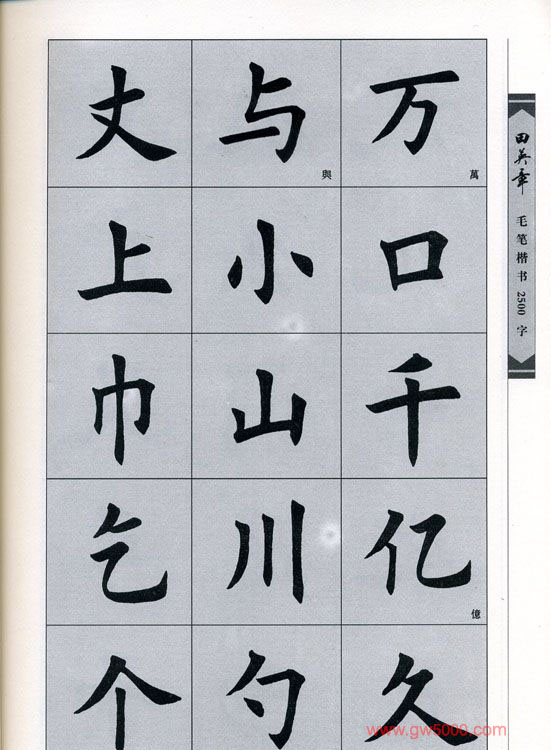 丈 与 與 万 萬
上 小 口
巾 山 千
乞 川 亿 億
个 勺 久
田英章 毛笔楷书2500字
www.gw5000.com